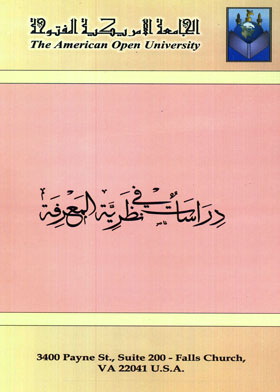 الجامعة الامريكية الفتوحة
The American Open University
دِرَاسَاتٌ فِي نَظَرِيَّةِ المَعْرِفَةِ
3400 Payne St., Suite 200 - Falls Church,
VA 22041 U.S.A.